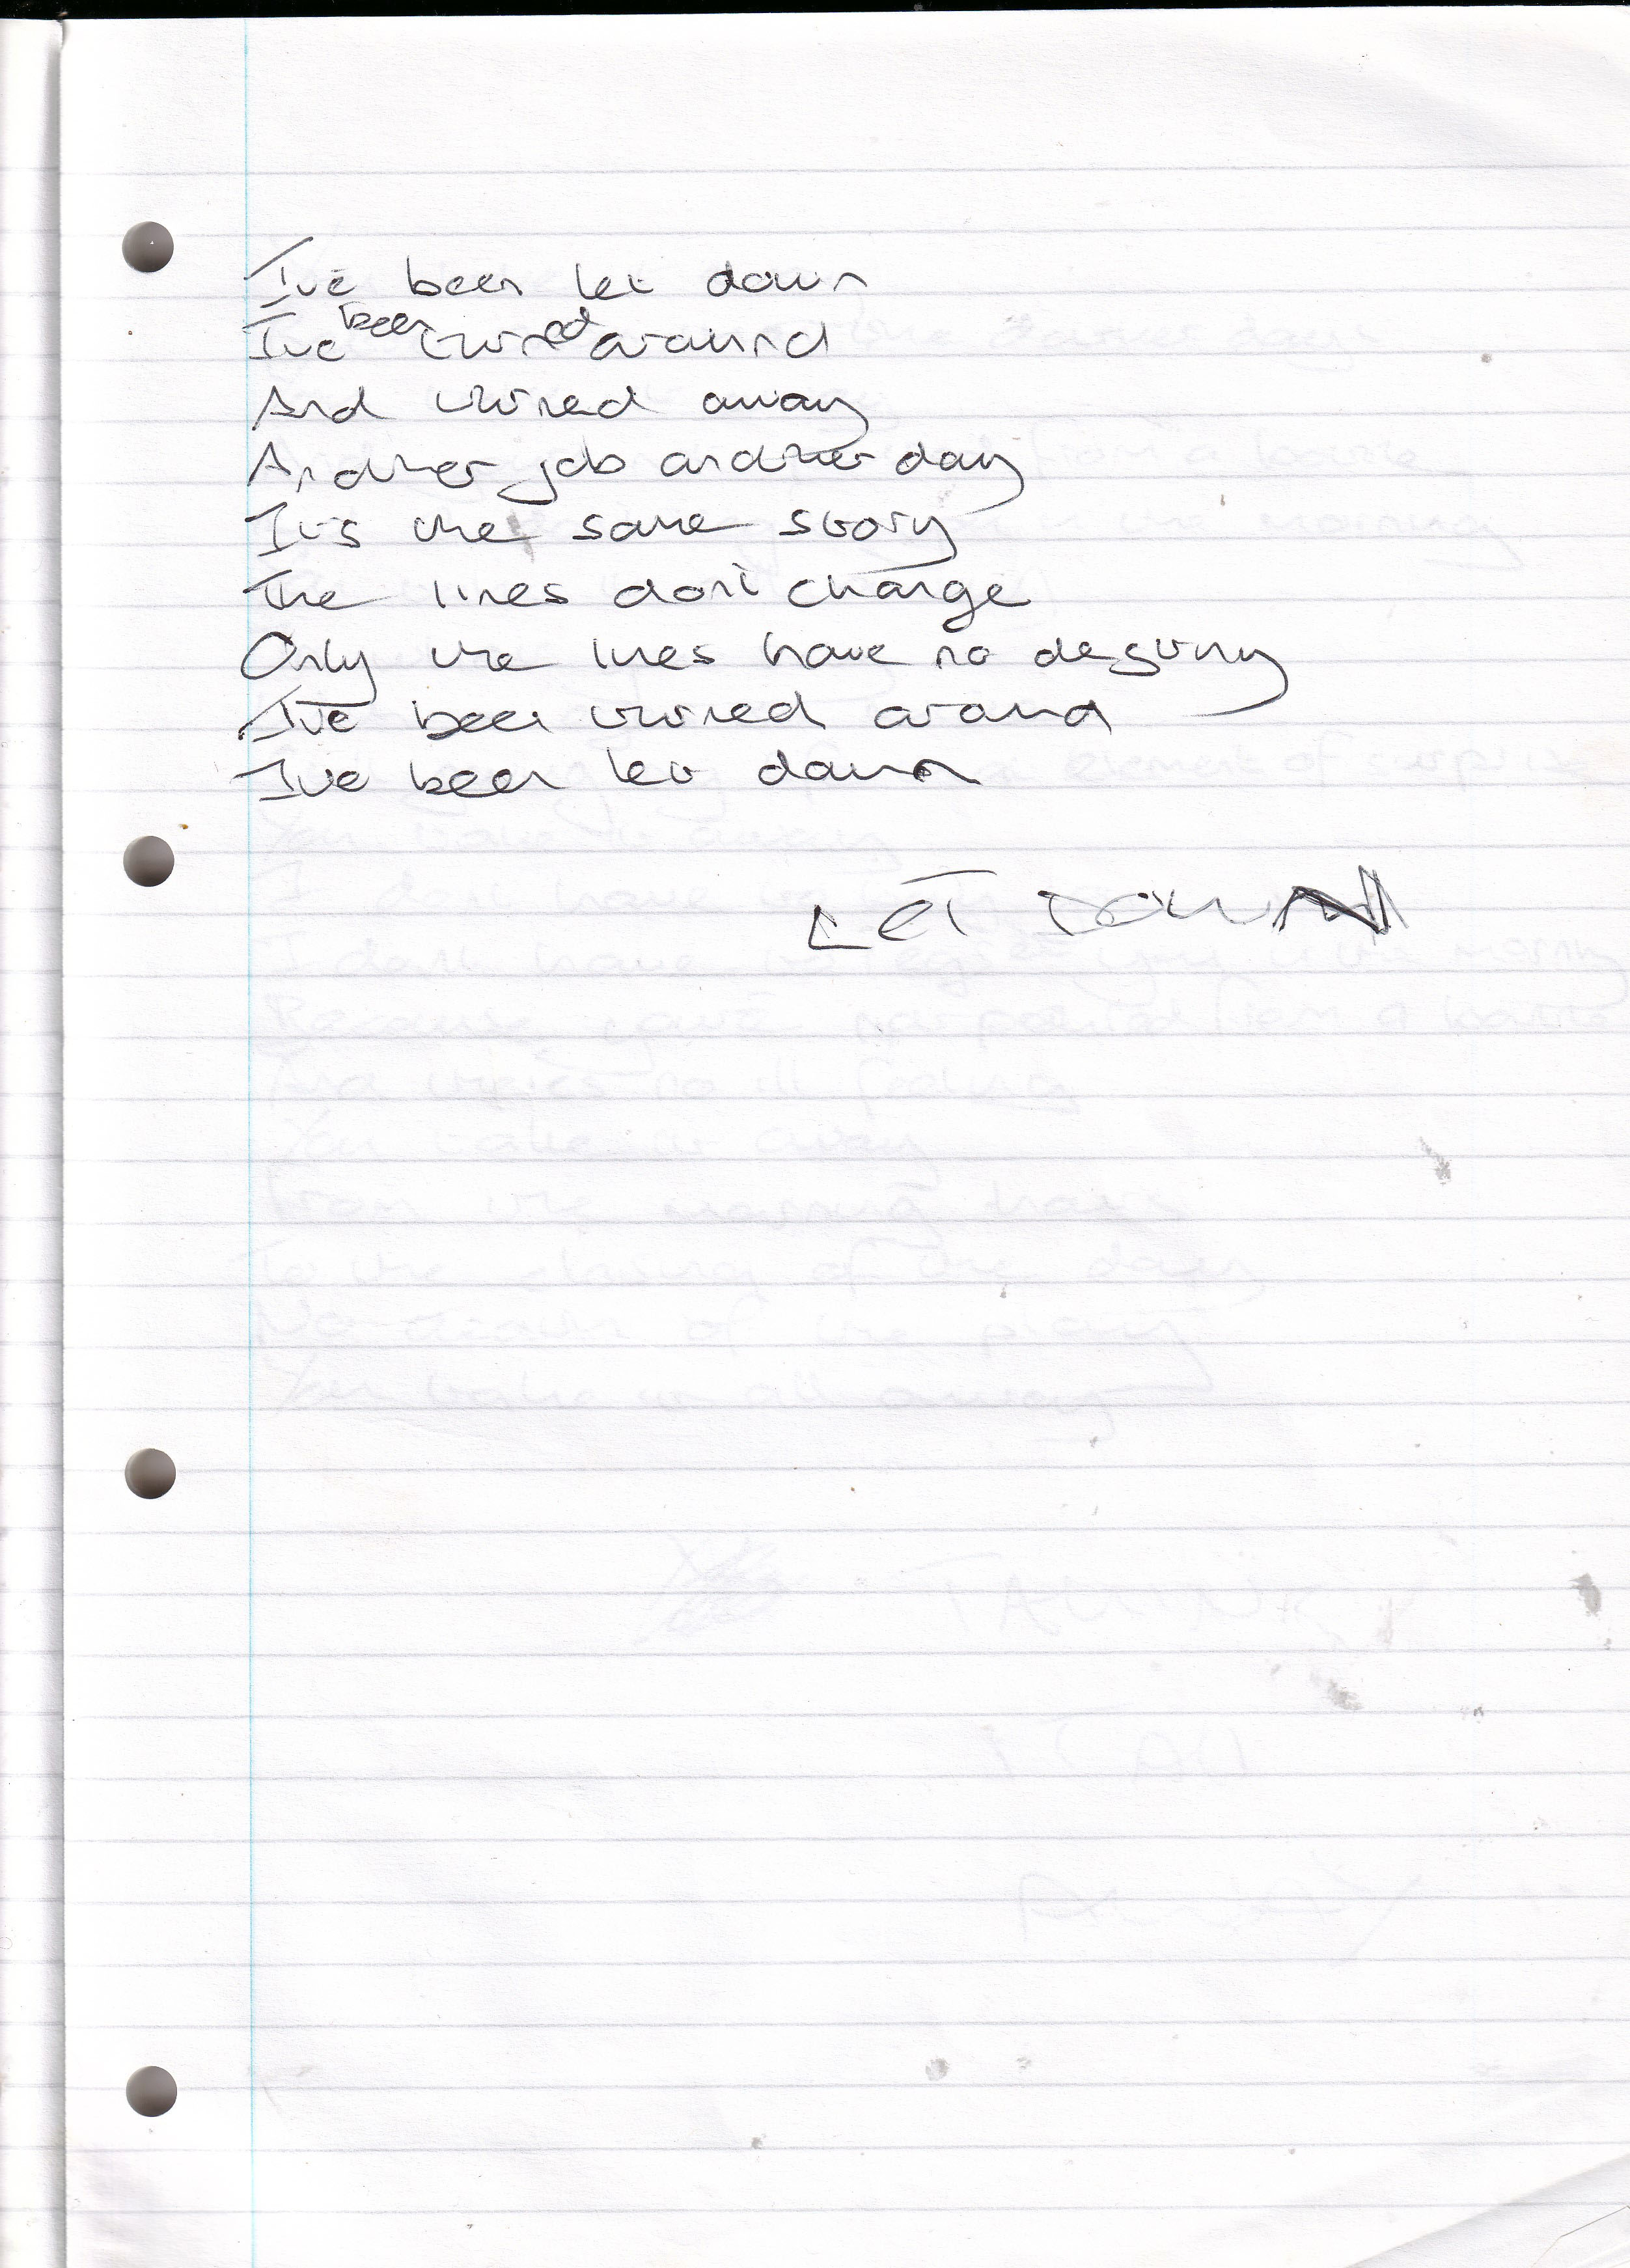 I've been let down
I've been turned around
And turned away
Another job another day
It's the same story
The lines don't change
Only the lines have no destiny
I've been turned around
I've been let down
LET DOWN